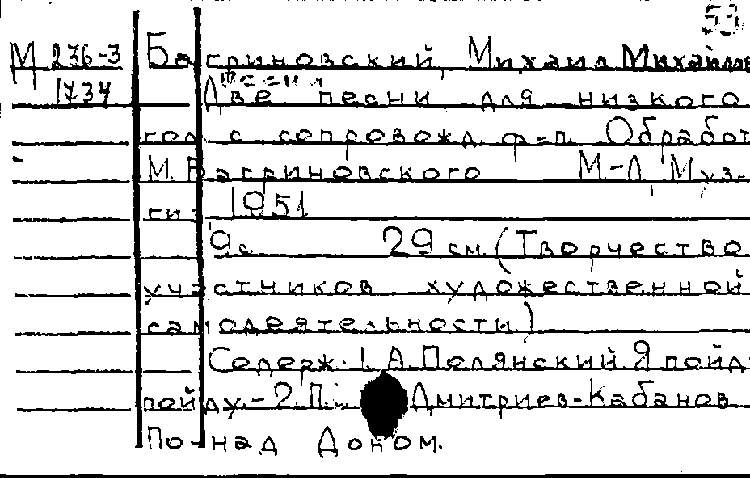 53
М 236-3 Багриновский, Михаил Михайлов
1734 Две песни для низкого
гол. с сопровожд. ф-п. Обработ
М. Багриновского М-Л, Муз-
гиз 1951
9 с. 29 см. (Творчество
участников художественной
самодеятельности)
Содерж. 1. А. Полянский. Я пойду
пойду. - 2. П. Дмитриев-Кабанов
По-над Доном.